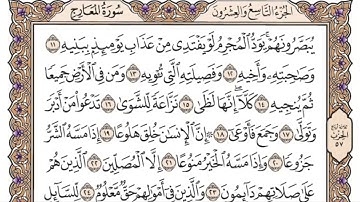 سُورَةُ المَعَارِجِ
الجُزْءُ التَّاسِعُ وَالعِشْرُونَ
يُبَصَّرُونَهُمْ يَوَدُّ الْمُجْرِمُ لَوْ يَفْتَدِى مِنْ عَذَابِ يَوْمِئِذٍ بِبَنِيهِ ١١
وَصَاحِبَتِهِ وَأَخِيهِ ١٢ وَفَصِيلَتِهِ الَّتِى تُـْٔوِيهِ ١٣ وَمَنْ فِى الْأَرْضِ جَمِيعًا
ثُمَّ يُنجِيهِ ١٤ كَلَّا إِنَّهَا لَظَى ١٥ نَزَّاعَةً لِّلشَّوَى ١٦ تَدْعُوا مَنْ أَدْبَرَ
وَتَوَلَّى ١٧ وَجَمَعَ فَأَوْعَى ١٨ إِنَّ الْإِنسَنَ خُلِقَ هَلُوعًا ١٩ إِذَا مَسَّهُ الشَّرُّ
جَزُوعًا ٢٠ وَإِذَا مَسَّهُ الْخَيْرُ مَنُوعًا ٢١ إِلَّا الْمُصَلِّينَ ٢٢ الَّذِينَ هُمْ
عَلَى صَلَاتِهِمْ دَائِمُونَ ٢٣ وَالَّذِينَ فِى أَمْوَالِهِمْ حَقٌّ مَّعْلُومٌ ٢٤ لِّلسَّائِلِ
الحِزْبُ
٥٧